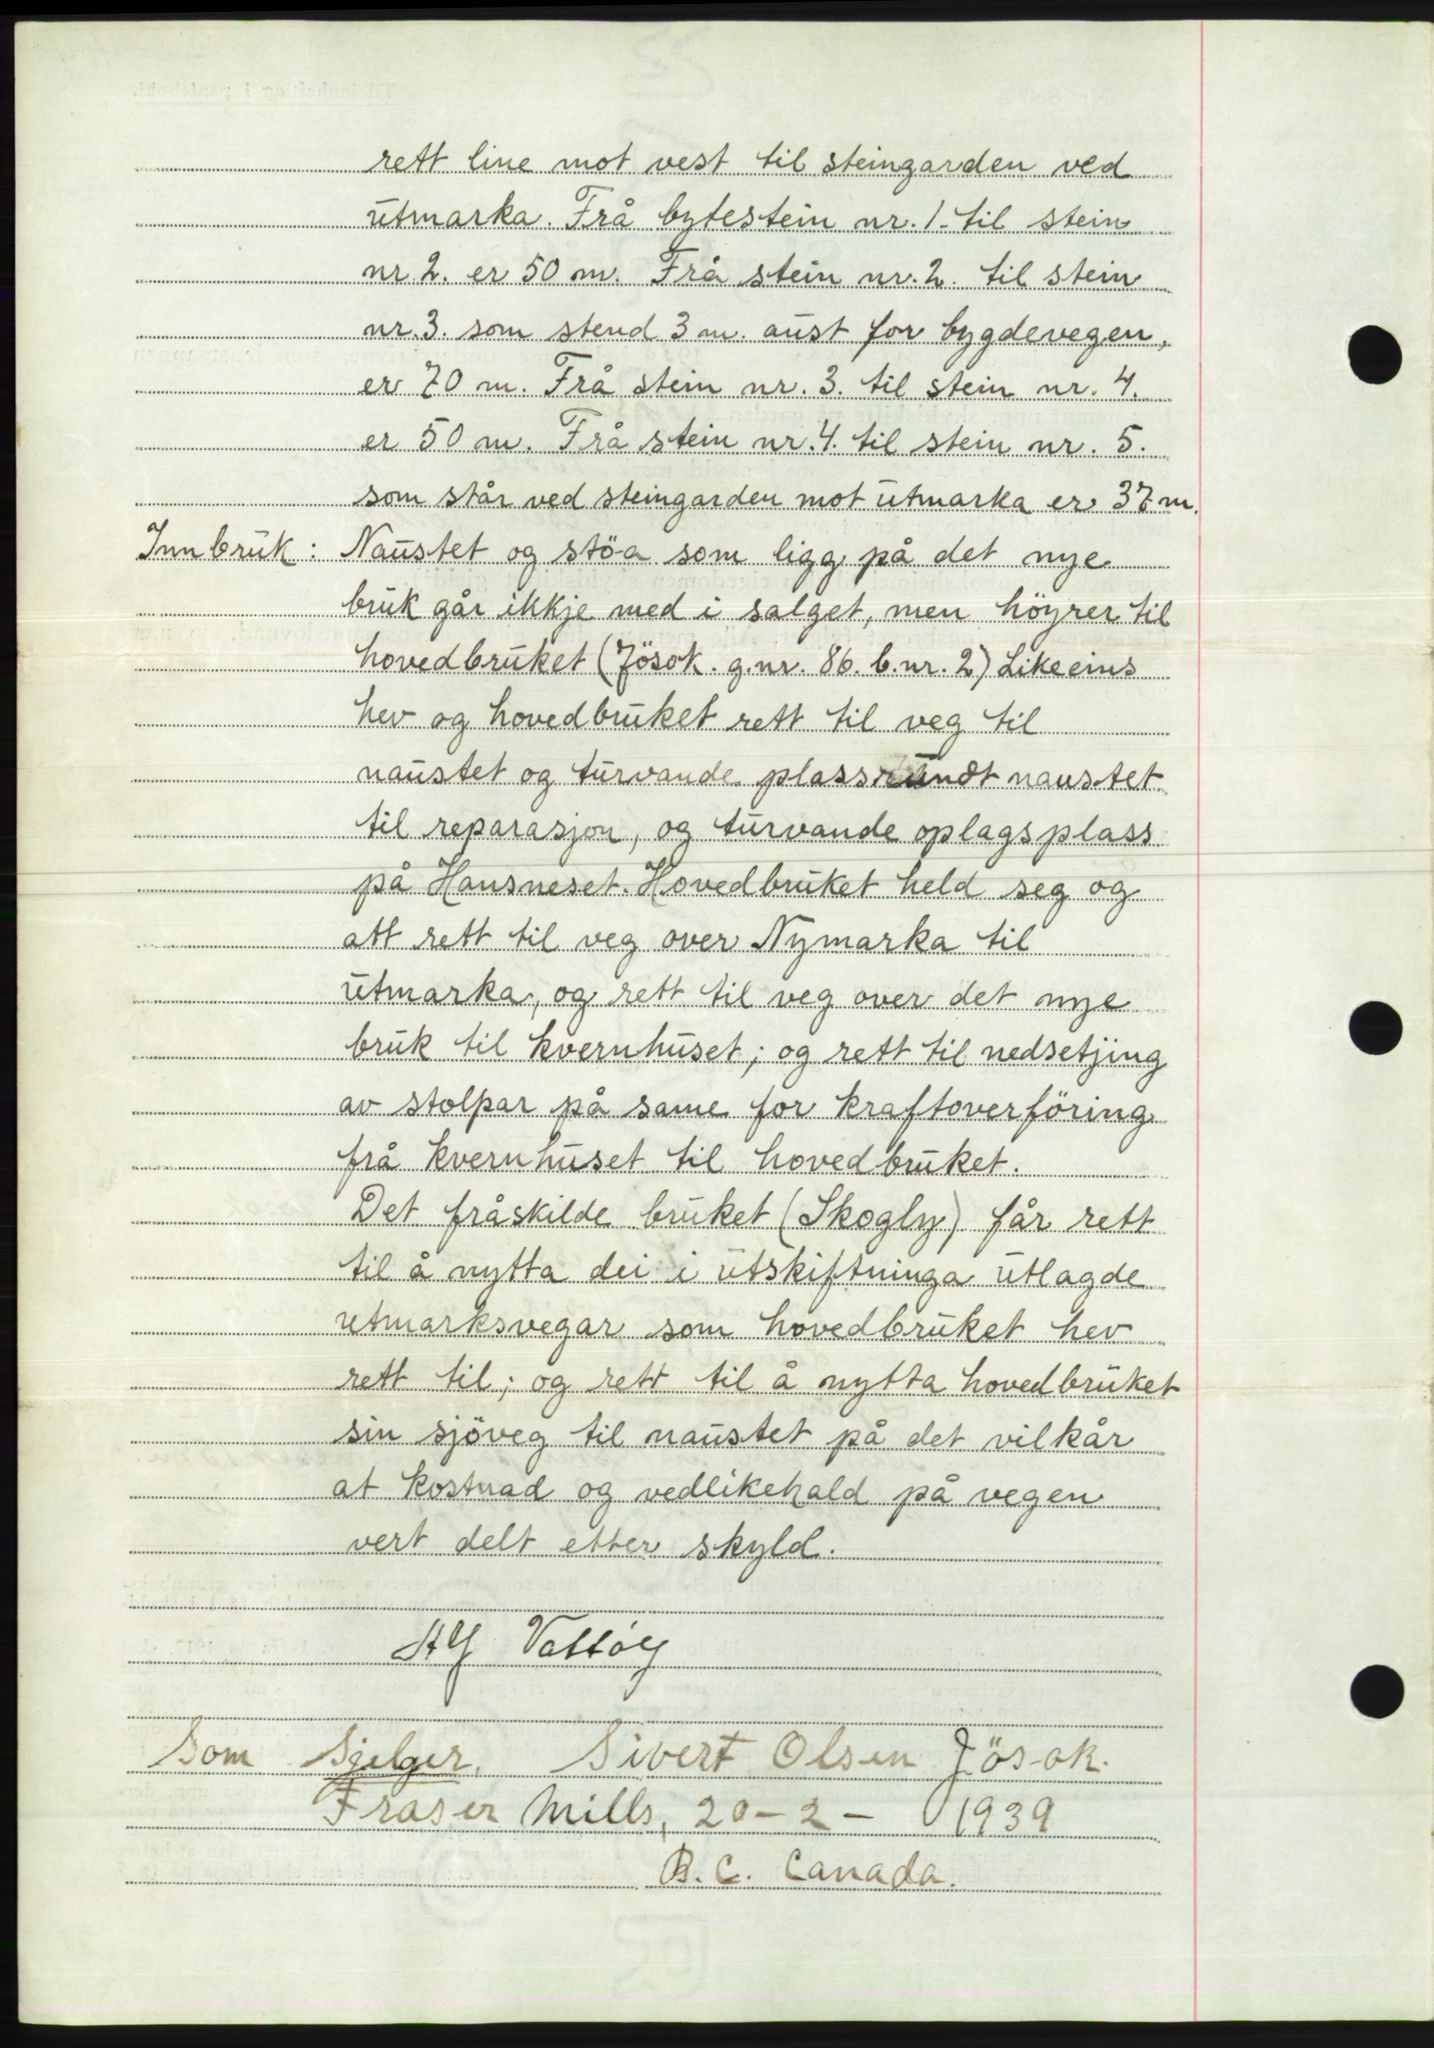 rett line mot vest til steingarden ved
utmarka. Frå bytestein nr. 1. til stein
nr. 2. er 50 m. Frå stein nr. 2. til stein
nr. 3. som stend 3 m. aust for bygdevegen,
er 70 m. Frå stein nr. 3. til stein nr. 4.
er 50 m. Frå stein nr. 4. til stein nr. 5.
som står ved steingarden mot utmarka er 37 m.
Innbruk: Naustet og stöa som ligg på det nye
bruk går ikkje med i salget, men höyrer til
hovedbruket (Jösok. g.nr. 86. b.nr. 2) Likeeins
hev og hovedbruket rett til veg til
naustet og turvande plass rundt naustet
til reparasjon, og turvande oplagsplass
på Hansneset. Hovedbruket held seg og
att rett til veg over Nymarka til
utmarka, og rett til veg over det nye
bruk til kvernhuset; og rett til nedsetjing
av stolpar på same for kraftoverföring
frå kvernhuset til hovedbruket.
Det fråskilde bruket (Skogly) får rett
til å nytta dei i utskiftninga utlagde
utmarksvegar som hovedbruket hev
rett til; og rett til å nytta hovedbruket
sin sjöveg til naustet på det vilkår
at kostnad og vedlikehald på vegen
vert delt etter skyld.
Alf Vattøy
Som Sjelger. Sivert Olsen Jösok.
Fraser Mills, 20-2- 1939
B.C. Canada.